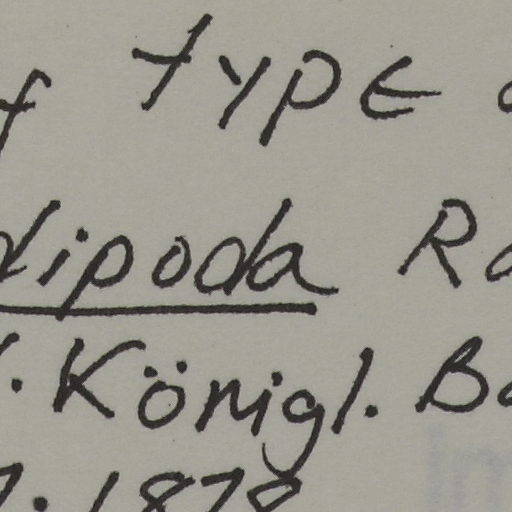 f type
dipoda R
. Königl. B
. 1878